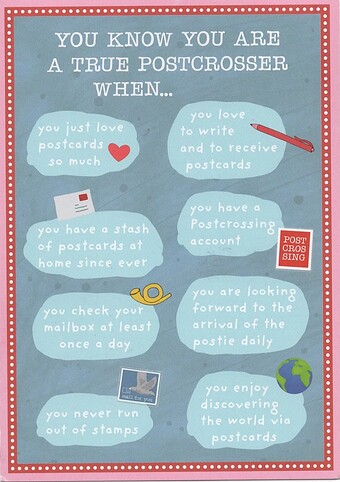 YOU KNOW YOU ARE
A TRUE POSTCROSSER
WHEN...
you just love
postcards
so much
you love
to write
and to receive
postcards
you have a stash
of postcards at
home since ever
you have a
Postcrossing
account
POST
CROS
SING
you check your
mailbox at least
once a day
you are looking
forward to the
arrival of the
postie daily
you never run
out of stamps
you enjoy
discovering
the world via
postcards